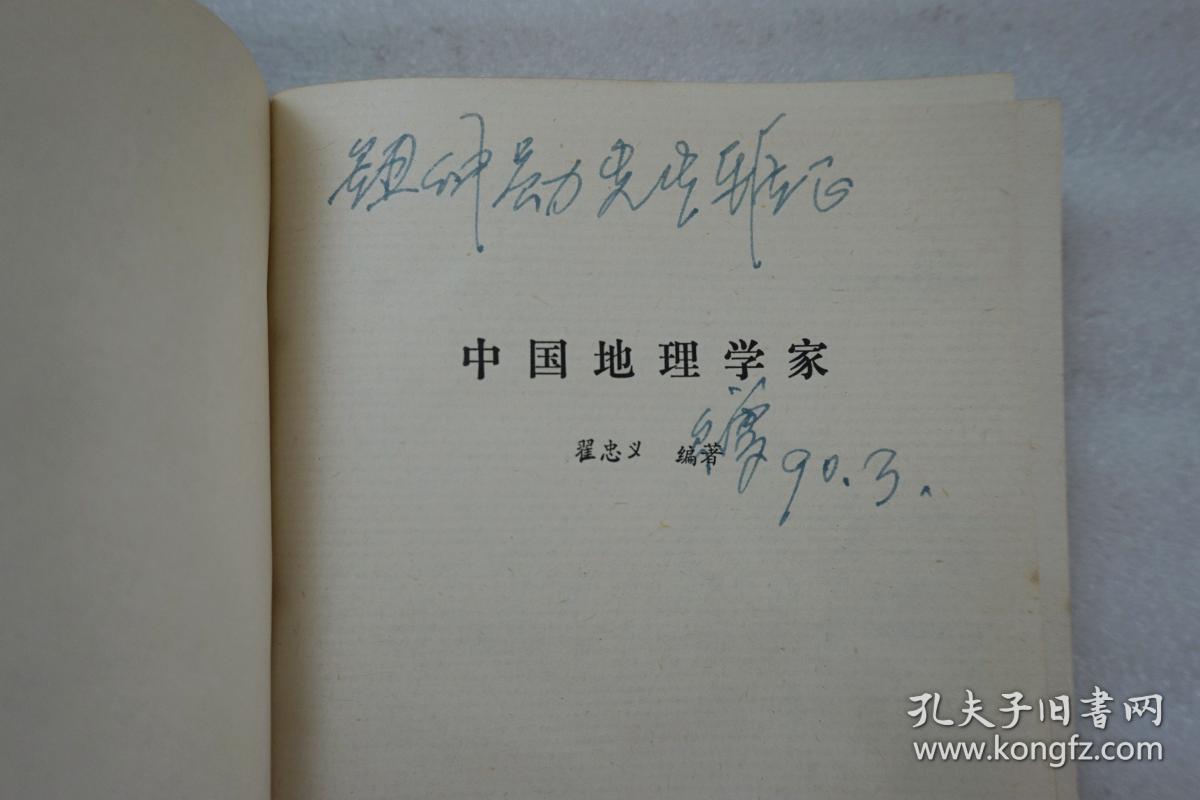 钮仲勋先生雅正
中国地理学家
翟忠义 编著
90.3.
孔夫子旧书网
www.kongfz.com